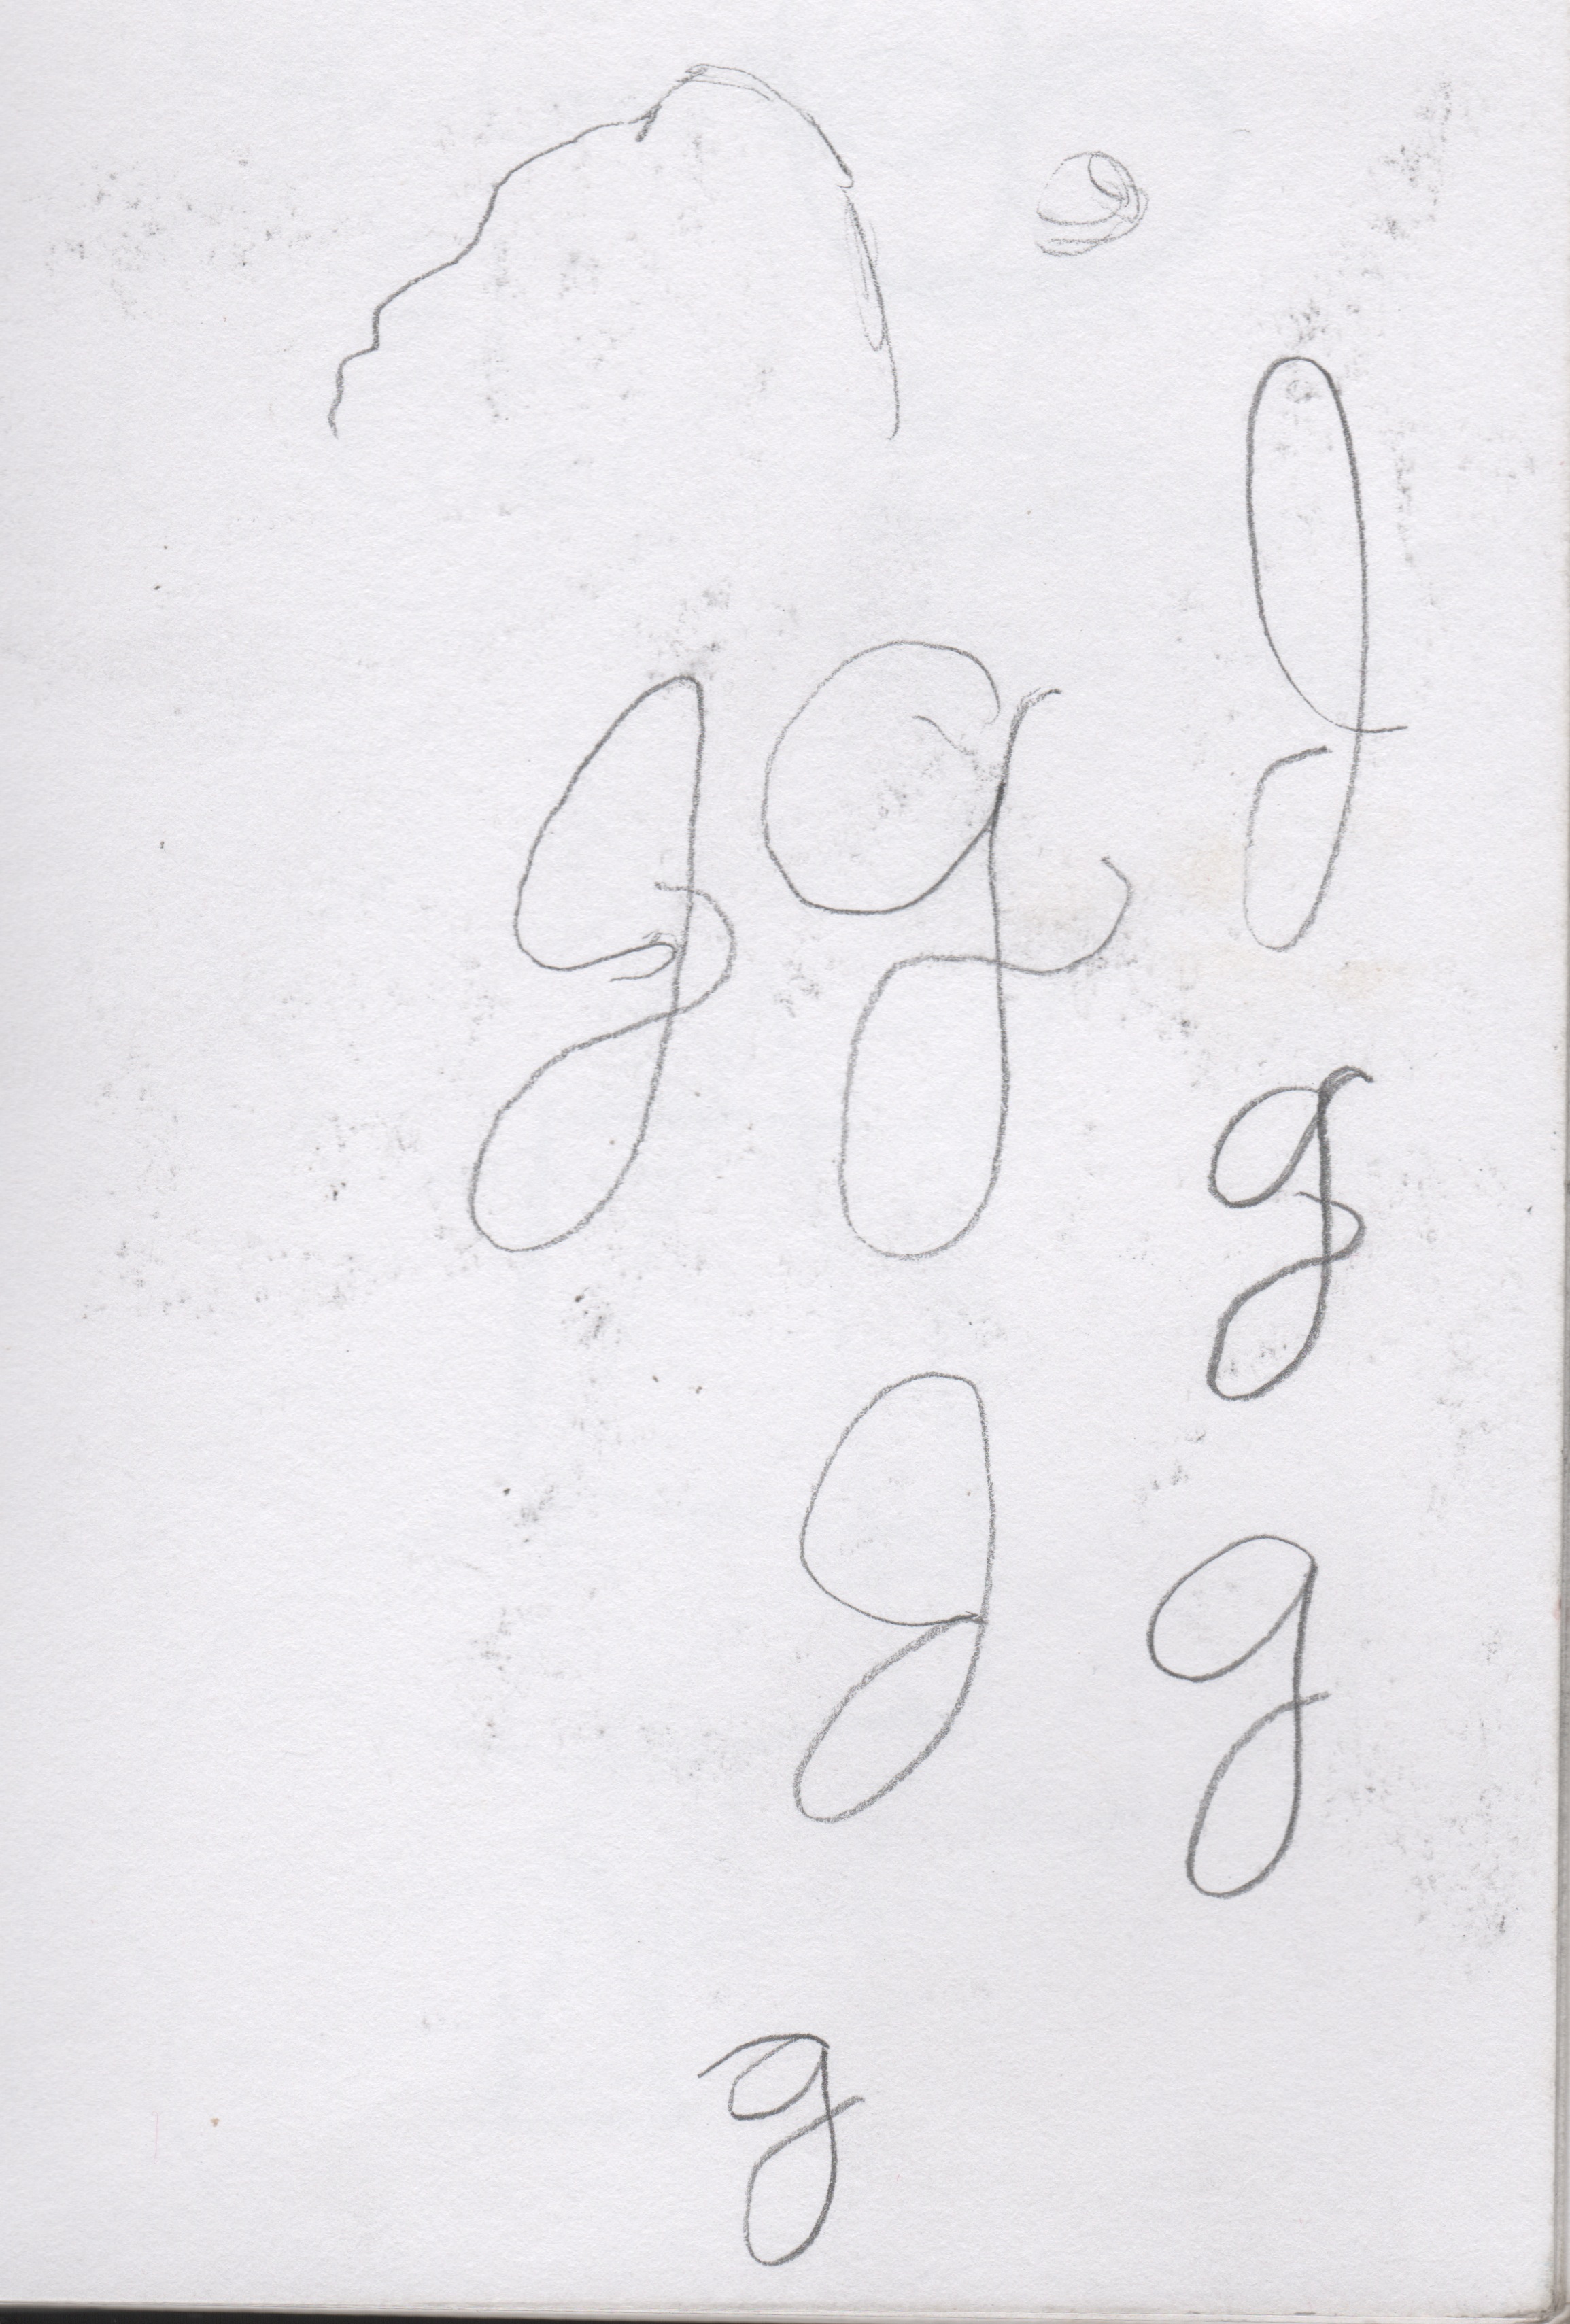 g g g
g
g g
g